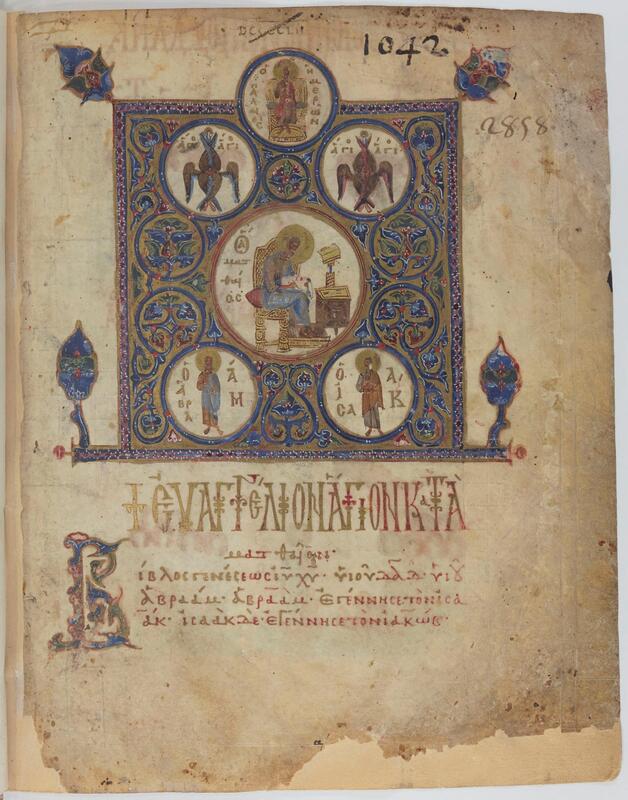 DCCCCLII
1042
2858
Ὁ ΠΑΛΑΙΟС ΗΜΕΡΩΝ
ἍΓΙ ἍΓΙ
Ⓐ ματθαῖος
Ὁ ΑΒΡΑ ΆΜ
Ὁ ΙСΑ ΑΚ
+ ΕΥΑΓΓΕΛΙΟΝ ἍΓΙΟΝ ΚΑΤΑ
ματθαῖον·
Βίβλος γενέσεως ιυ χυ · υἱοῦ δαδ υἱοῦ
ἀβραάμ · ἀβραὰμ · ἐγέννησε τὸν ισα
ακ · ισαὰκ δε · ἐγέννησε τὸν ιακωβ ·